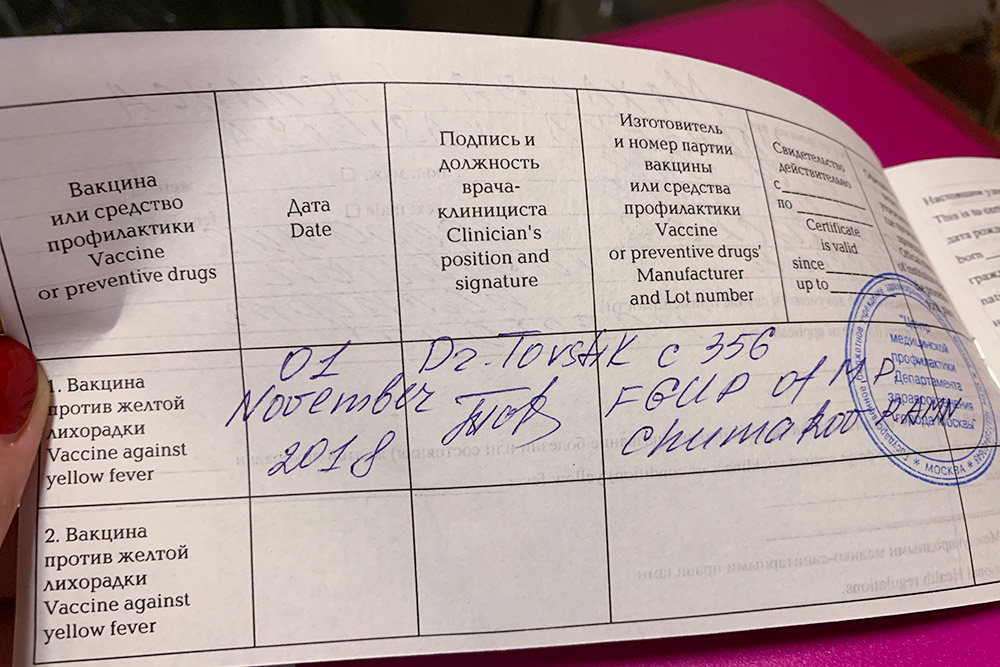 Вакцина
или средство
профилактики
Vaccine
or preventive drugs
Дата
Date
Подпись и
должность
врача-
клинициста
Clinician's
position and
signature
Изготовитель
и номер партии
вакцины
или средства
профилактики
Vaccine
or preventive drugs'
Manufacturer
and Lot number
Свидетельство
действительно
с
по
Certificate
is valid
since
up to
1. Вакцина
против желтой
лихорадки
Vaccine against
yellow fever
01
November
2018
Dr. Tovstik
c 356
FGUP of MP
Chumakov RAMN
"Центр
медицинской
профилактики
Департамента
здравоохранения
города Москвы"
* МОСКВА *
2. Вакцина
против желтой
лихорадки
Vaccine against
yellow fever
This is to
born